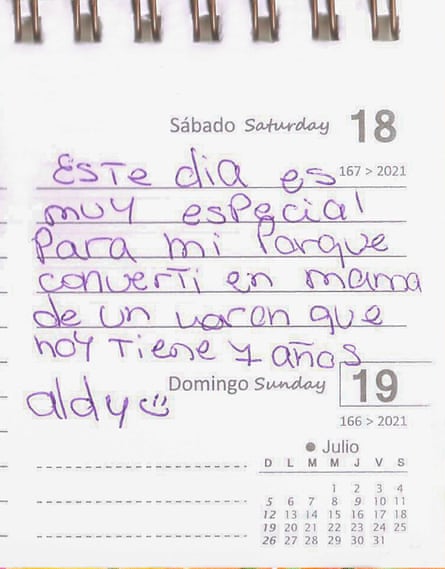 Sábado Saturday 18
167 > 2021
Este dia es
muy especial
Para mi Porque
converti en mama
de un varon que
hoy Tiene 7 años
Domingo Sunday 19
aldy
166 > 2021
Julio
D L M M J V S
1 2 3 4
5 6 7 8 9 10 11
12 13 14 15 16 17 18
19 20 21 22 23 24 25
26 27 28 29 30 31